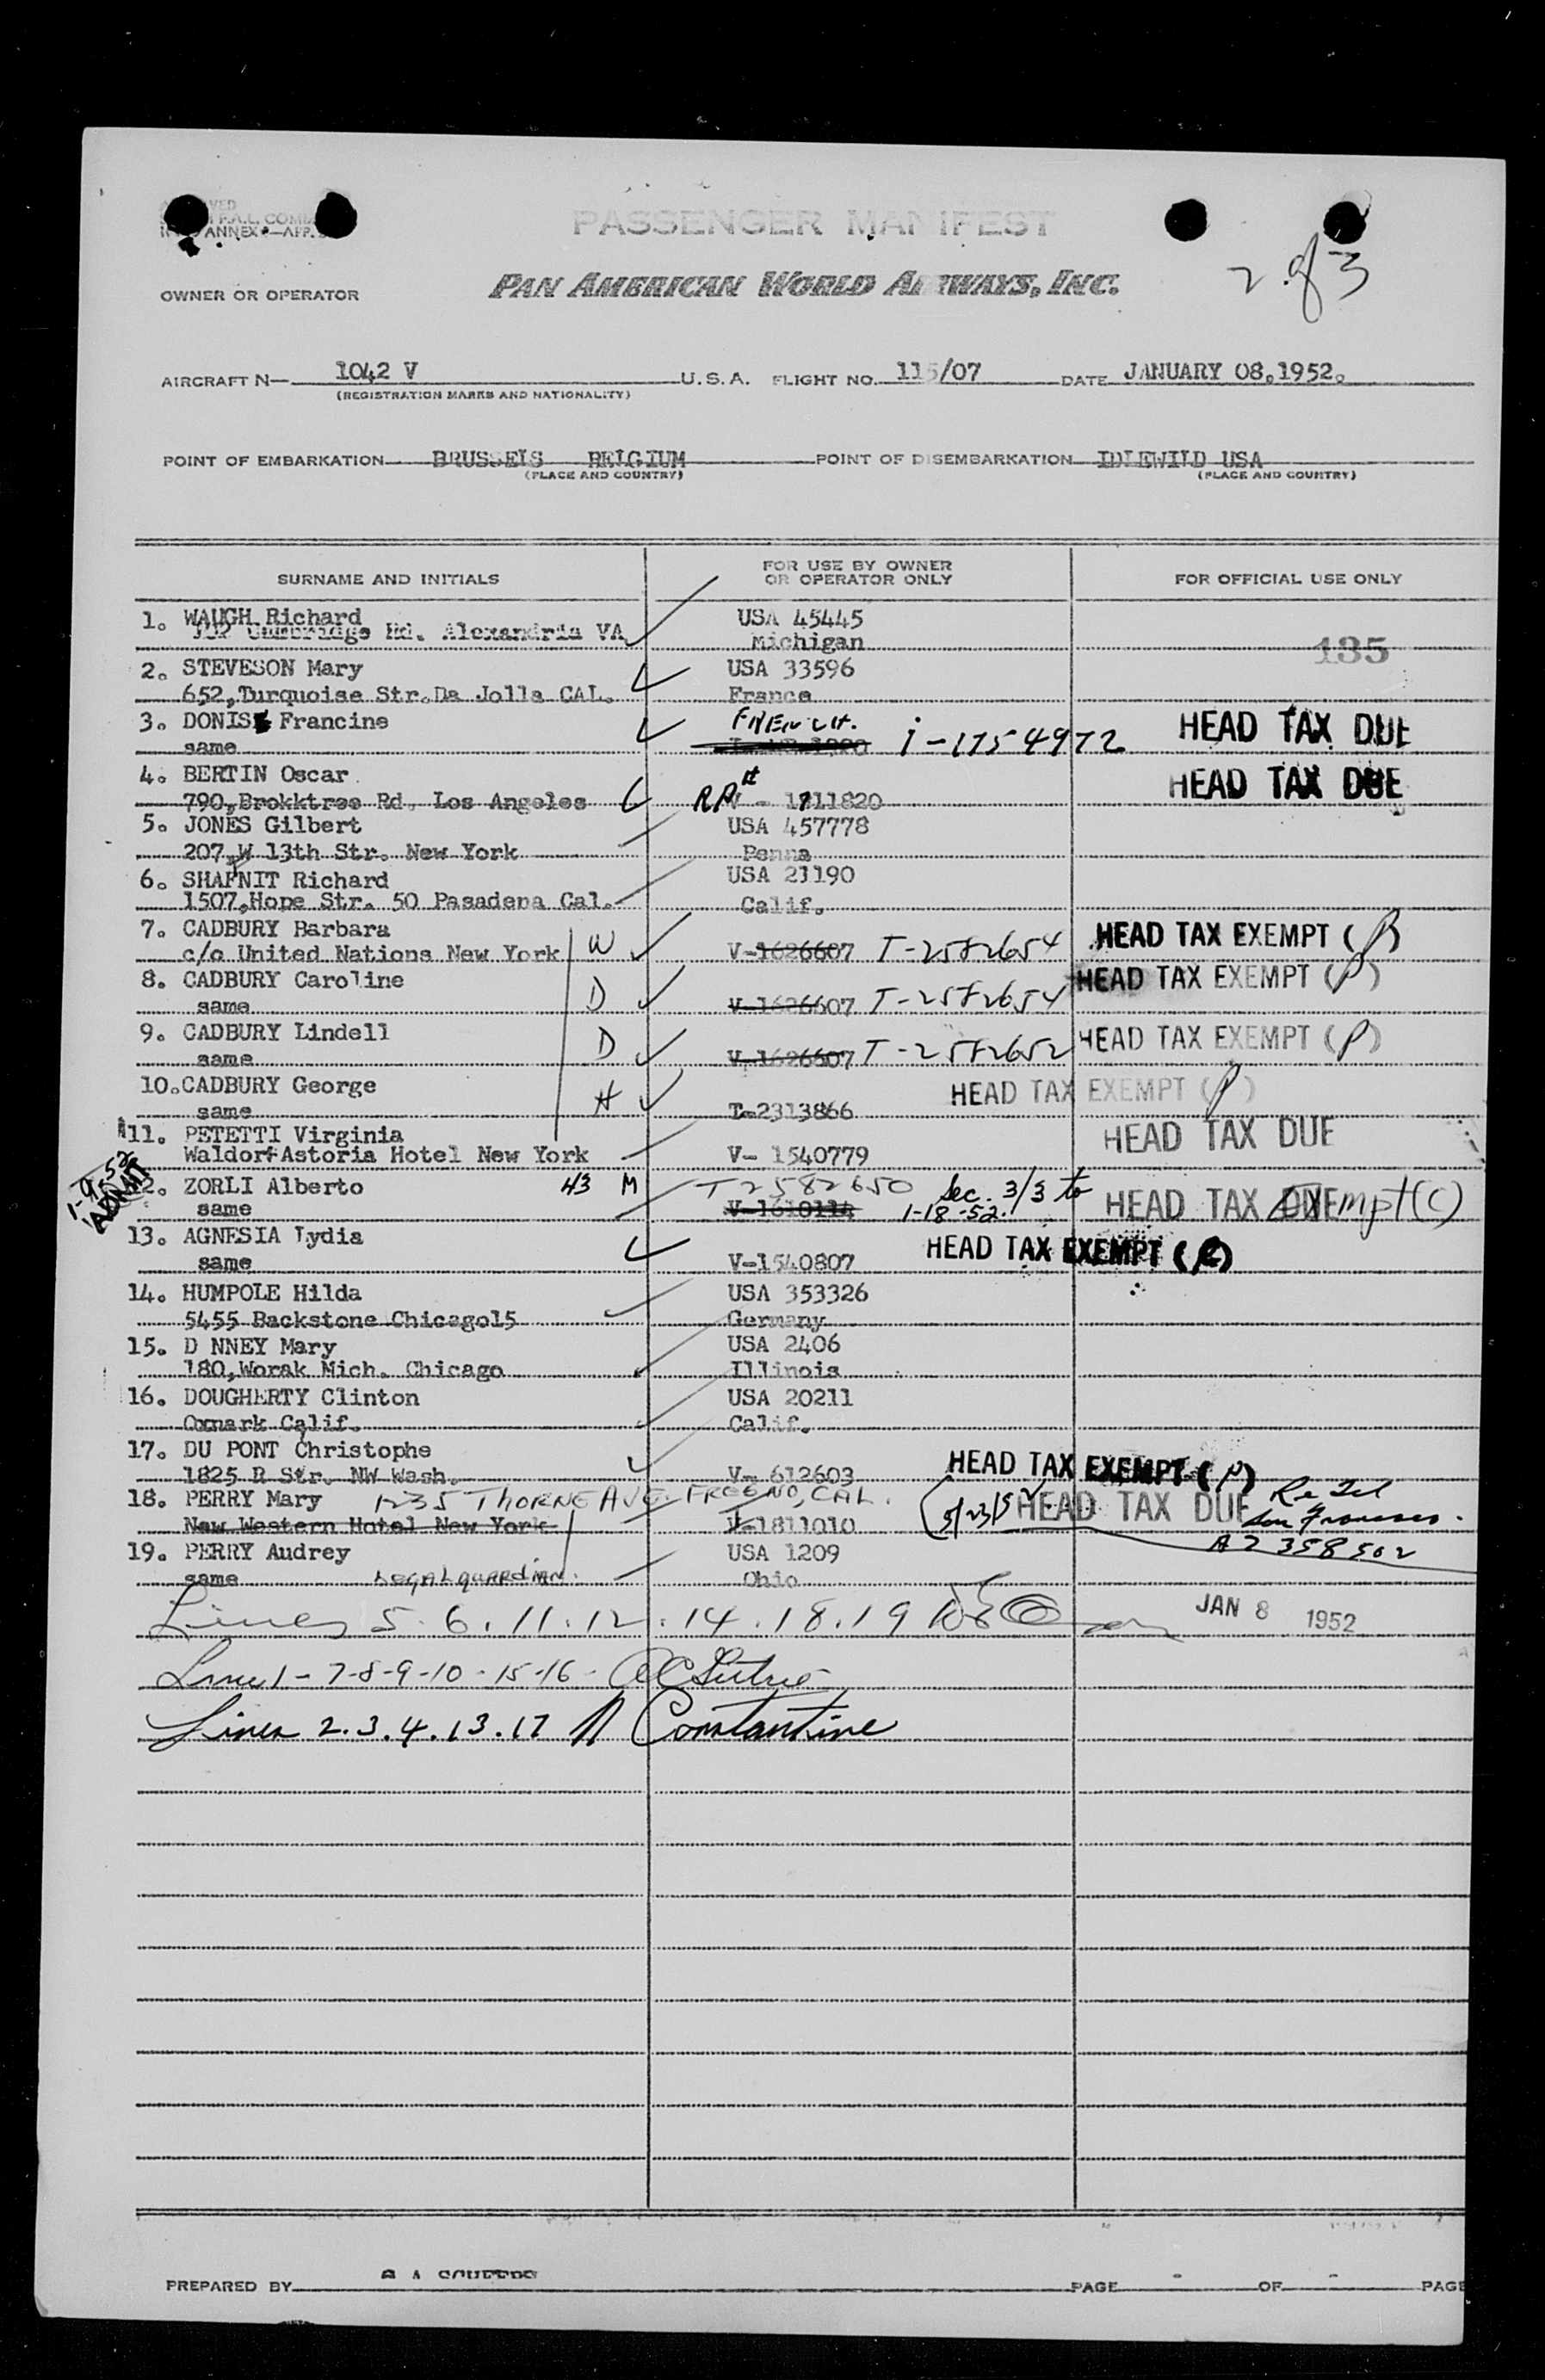 PASSENGER MANIFEST
2 of 3
OWNER OR OPERATOR PAN AMERICAN WORLD AIRWAYS, INC.
AIRCRAFT N— 1042 V U.S.A. FLIGHT NO. 115/07 DATE JANUARY 08.1952.
(REGISTRATION MARKS AND NATIONALITY)
POINT OF EMBARKATION BRUSSELS BELGIUM POINT OF DISEMBARKATION IDLEWILD USA
(PLACE AND COUNTRY) (PLACE AND COUNTRY)
SURNAME AND INITIALS FOR USE BY OWNER OR OPERATOR ONLY FOR OFFICIAL USE ONLY
1. WAUGH Richard USA 45445
Cambridge Rd. Alexandria VA Michigan 135
2. STEVESON Mary USA 33596
652,Turquoise Str.Da Jolla CAL. France
3. DONIS Francine FRENCH. HEAD TAX DUE
same i-1754972
4. BERTIN Oscar HEAD TAX DUE
790,Brokktree Rd. Los Angeles V - 1811820
5. JONES Gilbert USA 457778
207,W 13th Str. New York Penna
6. SHAFNIT Richard USA 21190
1507,Hope Str. 50 Pasadena Cal. Calif.
7. CADBURY Barbara HEAD TAX EXEMPT (P)
c/o United Nations New York W V-1626607 T-2582654
8. CADBURY Caroline HEAD TAX EXEMPT (P)
same D V-1626607 T-2582654
9. CADBURY Lindell HEAD TAX EXEMPT (P)
same D V-1626607 T-2582652
10.CADBURY George HEAD TAX EXEMPT (P)
same H T-2313866
11. PETETTI Virginia HEAD TAX DUE
Waldorf-Astoria Hotel New York V- 1540779
1-9-52 ADMIT
12. ZORLI Alberto 43 M T2582650 Sec. 3/3 to HEAD TAX DUE Exempt (C)
same 1-18-52.
13. AGNESIA Lydia HEAD TAX EXEMPT (C)
same V-1540807
14. HUMPOLE Hilda USA 353326
5455 Backstone Chicago15 Germany
15. D NNEY Mary USA 2406
180,Worak Mich. Chicago Illinois
16. DOUGHERTY Clinton USA 20211
Oxnark Calif. Calif.
17. DU PONT Christophe HEAD TAX EXEMPT (P)
1825 R Str. NW Wash. V- 612603
18. PERRY Mary 1235 THORNE AVE. FRESNO, CAL. (5/23/52) HEAD TAX DUE Re Tel
New Western Hotel New York -1811010 San Francisco.
19. PERRY Audrey USA 1209 A7 358502
same Legal guardian. Ohio
Lines 5. 6. 11. 12. 14. 18. 19 JAN 8 1952
Lines 1-7-8-9-10-15-16-
Lines 2.3.4.13.17 Constantine
PREPARED BY PAGE - OF - PAGE